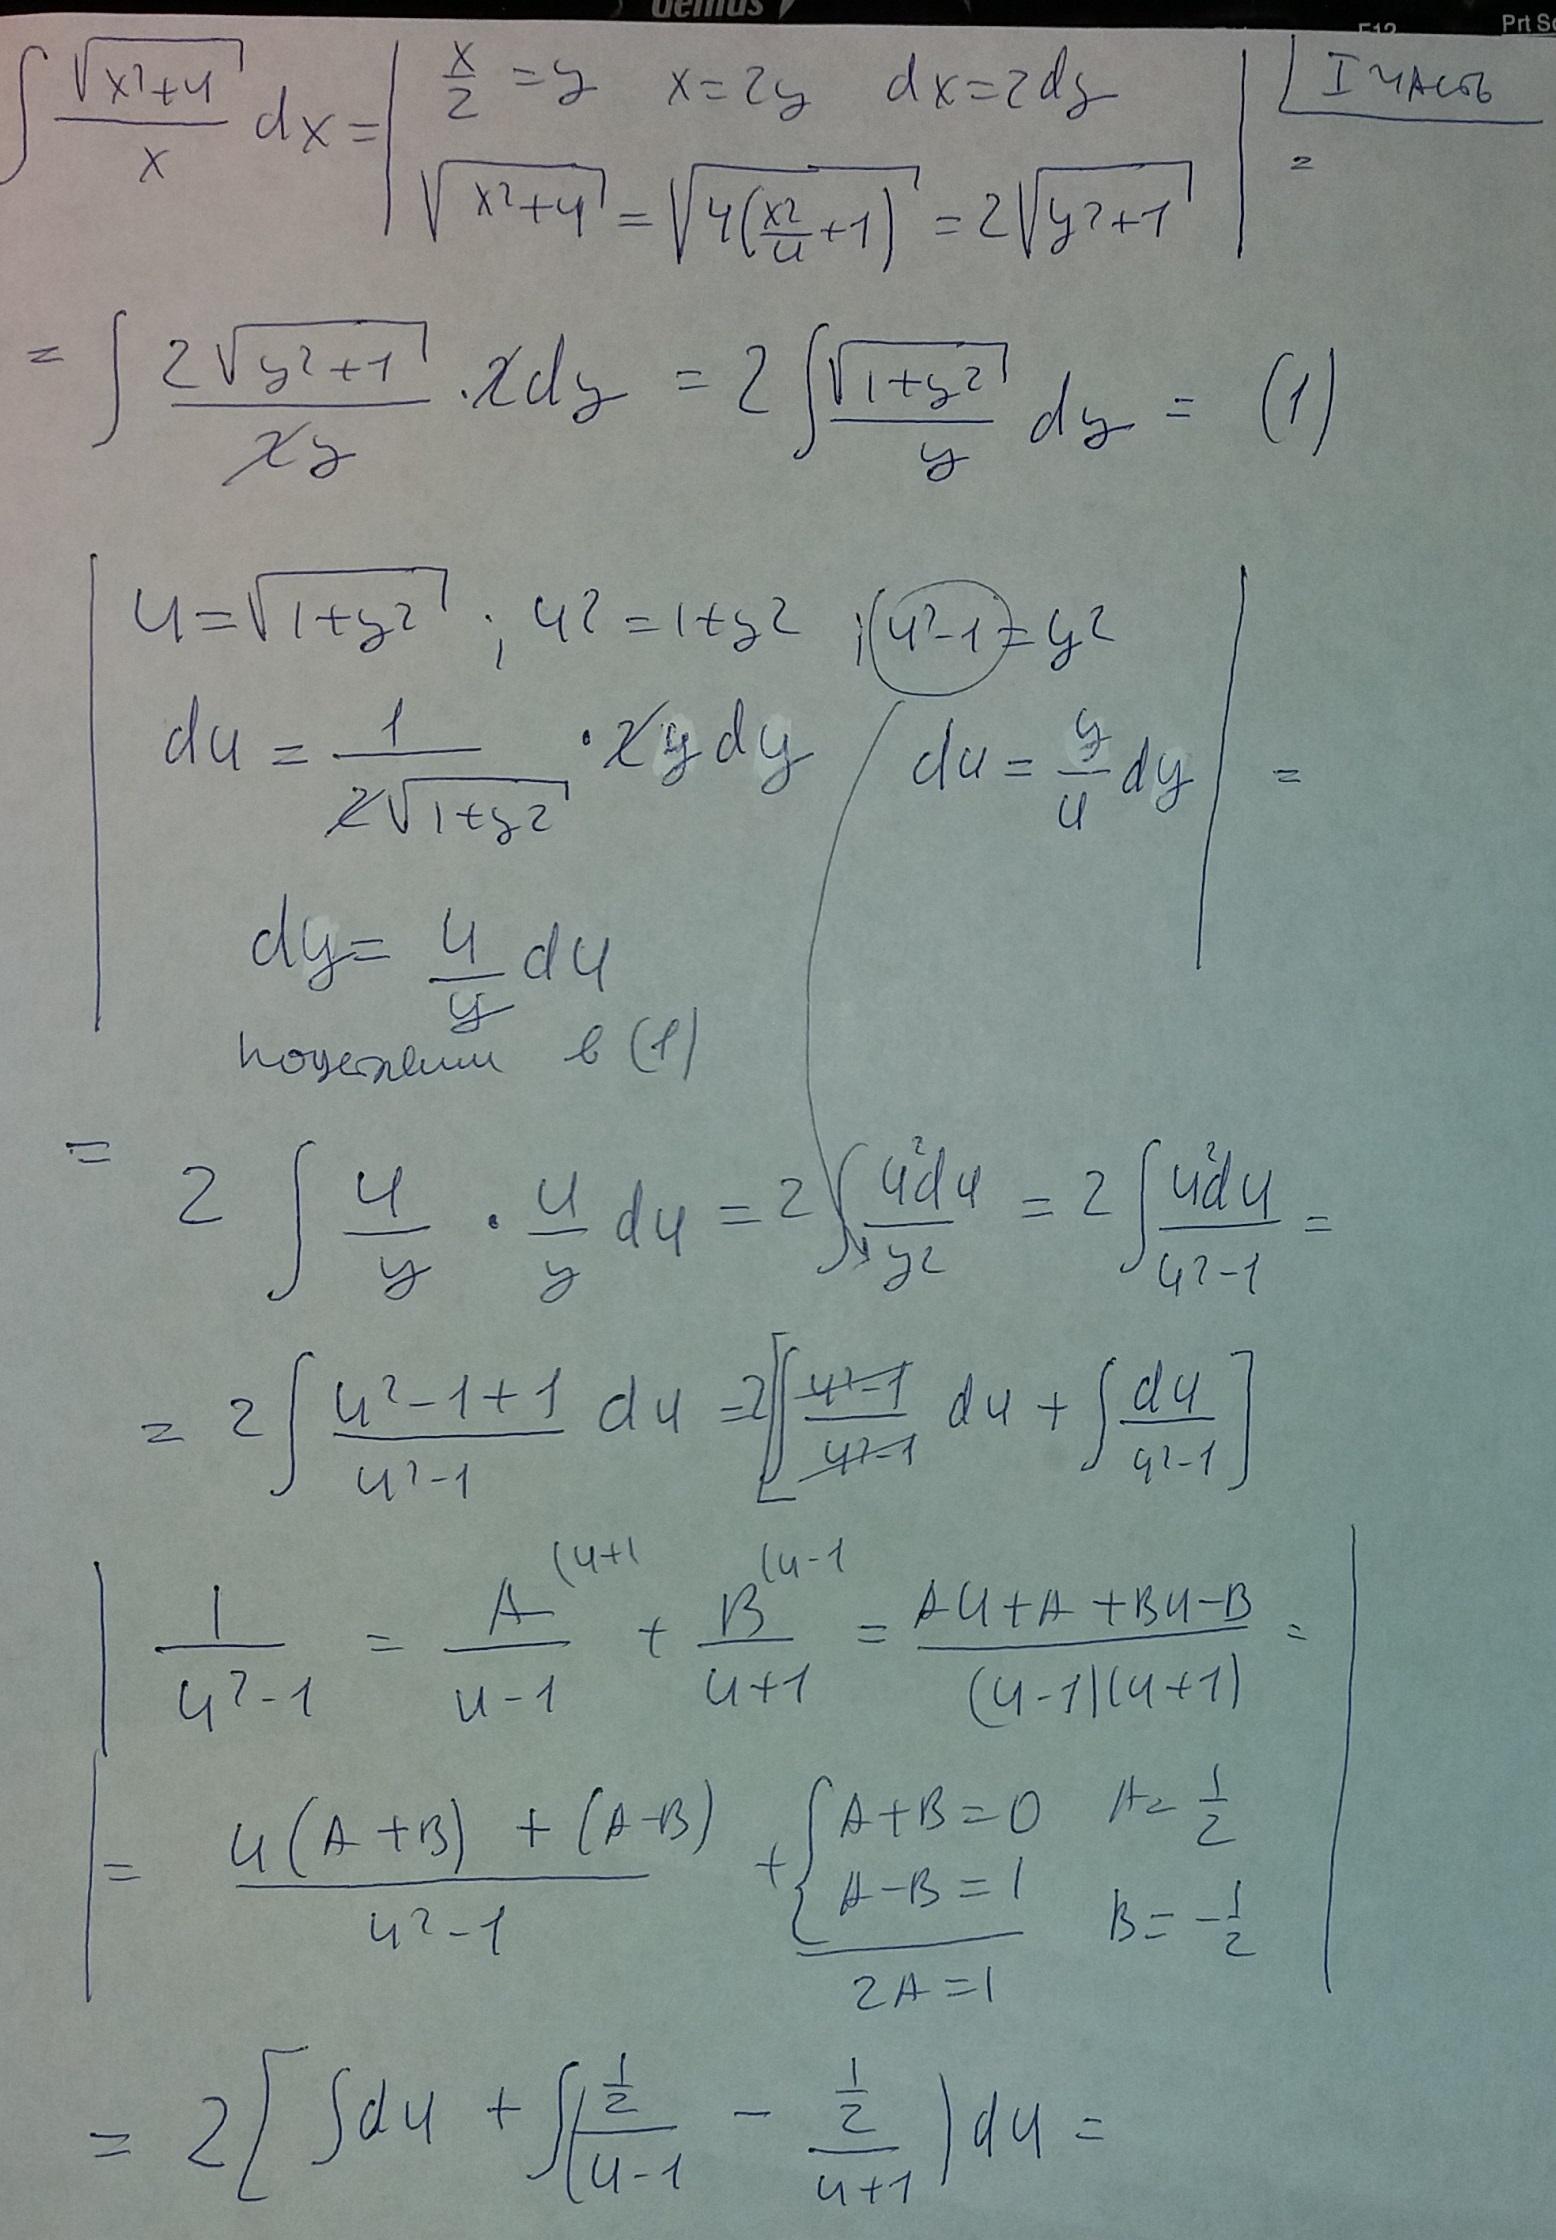 demus
F12 Prt Sc
∫ √(x²+4)/x dx = | x/2 = y x = 2y dx = 2dy | I часть
√(x²+4) = √(4(x²/4+1)) = 2√(y²+1) | =
= ∫ 2√(y²+1)/2y · 2dy = 2 ∫ √(1+y²)/y dy = (1)
u = √(1+y²) ; u² = 1+y² ; (u²-1) = y²
du = 1/(2√(1+y²)) · 2y dy du = y/u dy | =
dy = u/y du
в (1)
= 2 ∫ u/y · u/y du = 2 ∫ u²du/y² = 2 ∫ u²du/(u²-1) =
= 2 ∫ (u²-1+1)/(u²-1) du = 2[∫ (u²-1)/(u²-1) du + ∫ du/(u²-1)]
1/(u²-1) = A (u+1 /(u-1) + B (u-1 /(u+1) = (Au+A+Bu-B)/((u-1)(u+1)) =
= (u(A+B)+(A-B))/(u²-1) + { A+B=0 A= 1/2
A-B=1 B= -1/2
2A=1
= 2[ ∫du + ∫( 1/2/(u-1) - 1/2/(u+1) ) du =